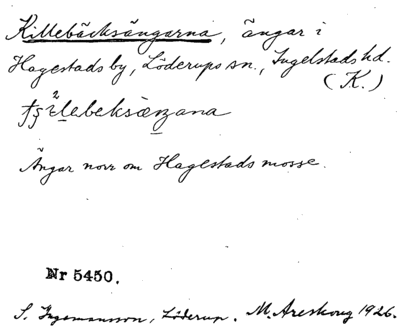 Killebäcksängarna, ängar i
Hagestads by, Löderups sn., Ingelstads hd.
(K.)
Ängar norr om Hagestads mosse.
Nr 5450.
S. Ingemansson, Löderup. M. Areskoug 1926.